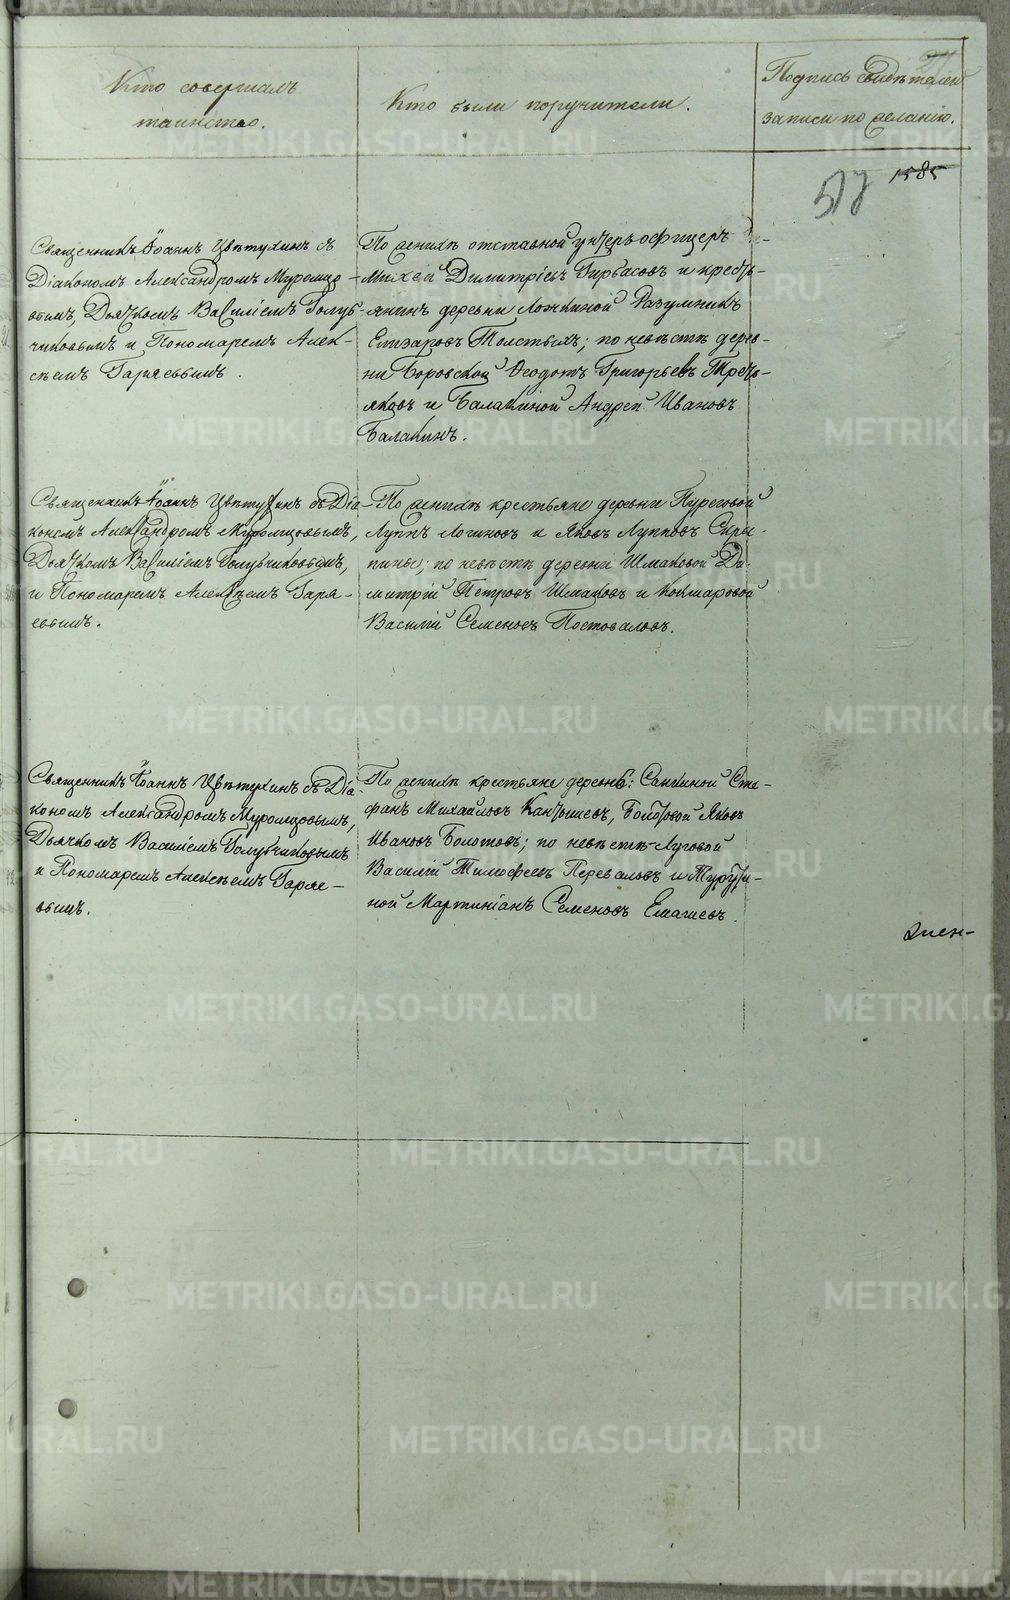 Кто совершалъ
таинство.
Кто были поручители.
Подпись свидѣтелей
записи по желанію.
57
1585
Священникъ Іоаннъ Цвѣтухинъ съ
Діакономъ Александромъ Муромцо-
вымъ, Дьячкомъ Василіемъ Голуб-
чиковымъ и Пономаремъ Алек-
сѣемъ Гаряевымъ.
По женихѣ отставной унтеръ офицеръ
Михей Димитріевъ Гирбасовъ и кресть-
янинъ деревни Ложкиной Разумникъ
Елизаровъ Толстыхъ; по невѣстѣ дерев-
ни Боровской Ѳеодотъ Григорьевъ Треть-
яковъ и Балакиной Андрей Ивановъ
Балакинъ.
Священникъ Іоаннъ Цвѣтухинъ съ Діа-
кономъ Александромъ Муромцовымъ,
Дьячкомъ Василіемъ Голубчиковымъ,
и Пономаремъ Алексѣемъ Гаря-
евымъ.
По женихѣ крестьяне деревни Пуреговой
Луппъ Логиновъ и Яковъ Лупповъ Скри-
пины; по невѣстѣ деревни Шмаковой Ди-
митрій Петровъ Шмаковъ и Кокшаровой
Василій Семеновъ Постоваловъ.
Священникъ Іоаннъ Цвѣтухинъ съ Діа-
кономъ Александромъ Муромцовымъ,
Дьячкомъ Василіемъ Голубчиковымъ
и Пономаремъ Алексѣемъ Гаряе-
вымъ.
По женихѣ крестьяне деревнь: Санкиной Сте-
фанъ Михайловъ Кантышевъ, Болотовой Яковъ
Ивановъ Болотовъ; по невѣстѣ Луговой
Василій Тимофеевъ Переваловъ и
ной Мартиніанъ Семеновъ
METRIKI.GASO-URAL.RU